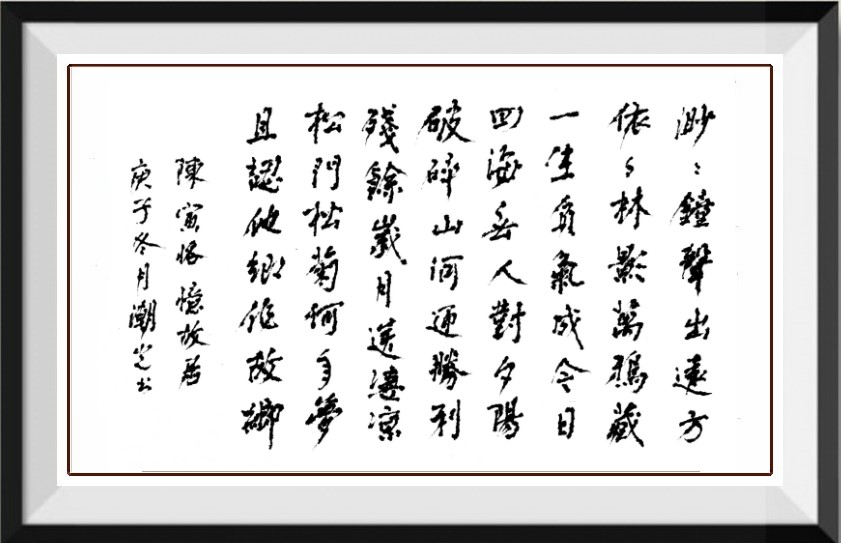 渺〻鐘聲出遠方
依〻林影萬鴉藏
一生負氣成今日
四海無人對夕陽
破碎山河迎勝利
殘餘歲月送淒涼
松門松菊何年夢
且認他鄉作故鄉
陳寅恪憶故居
庚子冬月潮芝書